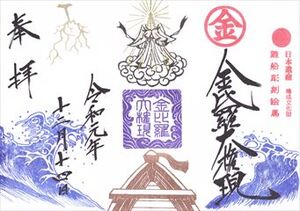 日本遺産 構成文化財
難船彫刻絵馬
金
金毘羅大権現
金比羅
大権現
令和元年
十二月十四日
奉拝